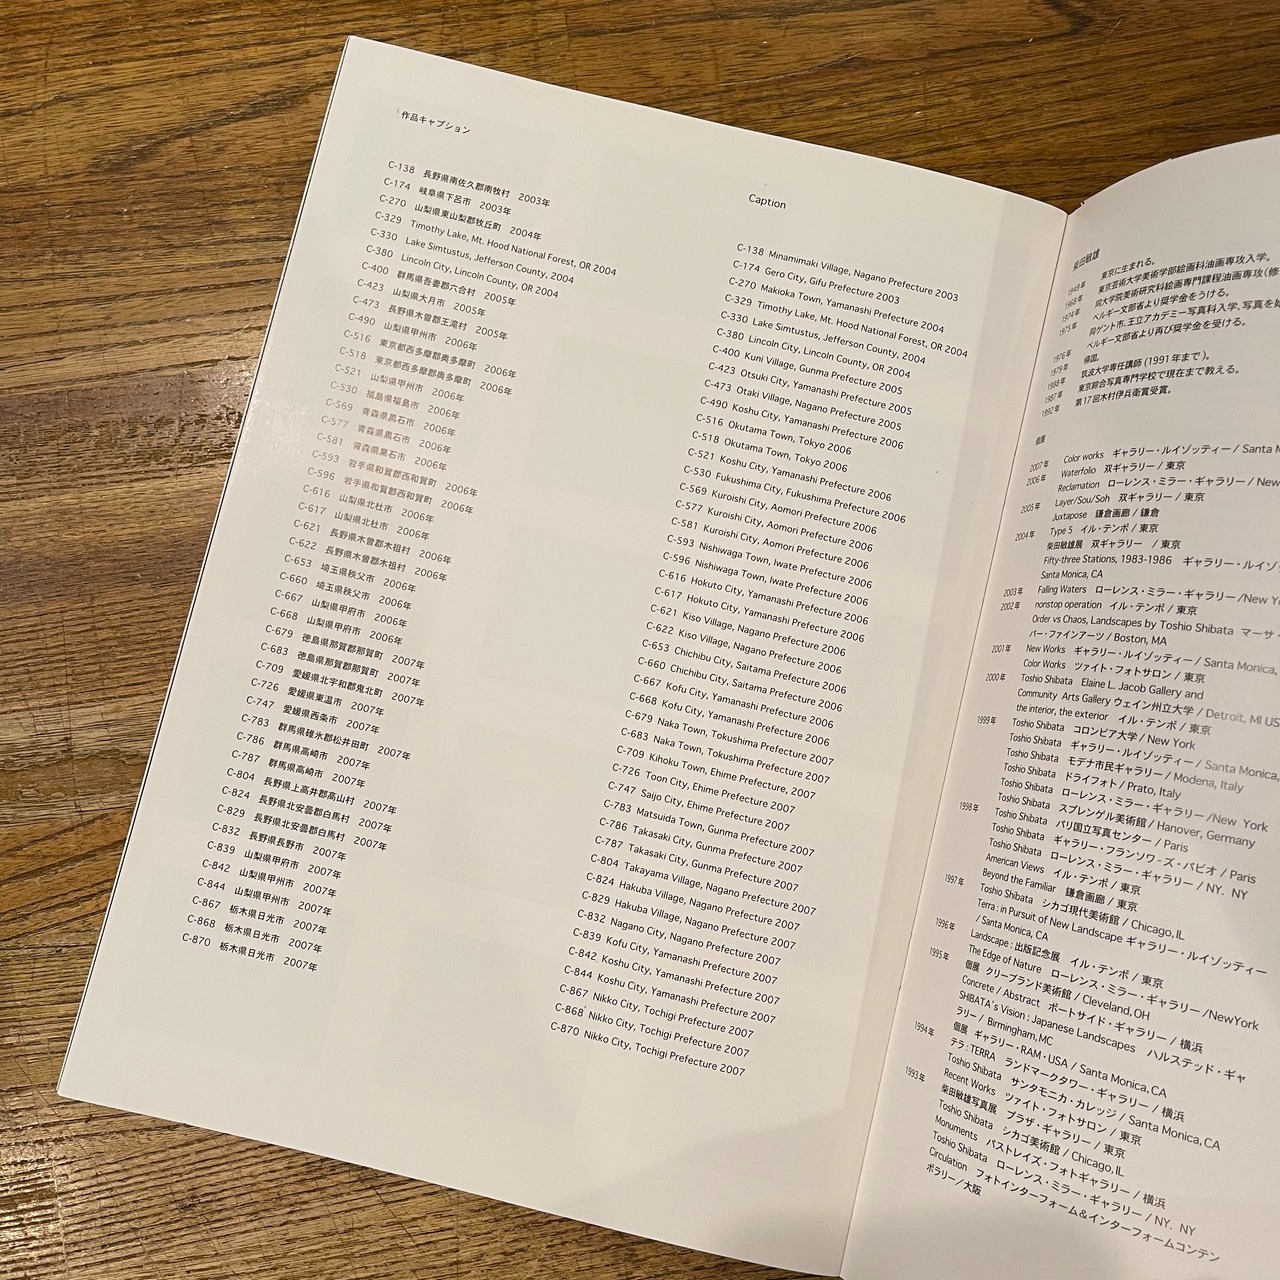 作品キャプション
C-138 長野県南佐久郡南牧村 2003年
C-174 岐阜県下呂市 2003年
C-270 山梨県東山梨郡牧丘町 2004年
C-329 Timothy Lake, Mt. Hood National Forest, OR 2004
C-330 Lake Simtustus, Jefferson County, 2004
C-380 Lincoln City, Lincoln County, OR 2004
C-400 群馬県吾妻郡六合村 2005年
C-423 山梨県大月市 2005年
C-473 長野県木曽郡王滝村 2005年
C-490 山梨県甲州市 2006年
C-516 東京都西多摩郡奥多摩町 2006年
C-518 東京都西多摩郡奥多摩町 2006年
C-521 山梨県甲州市 2006年
C-530 福島県福島市 2006年
C-569 青森県黒石市 2006年
C-577 青森県黒石市 2006年
C-581 青森県黒石市 2006年
C-593 岩手県和賀郡西和賀町 2006年
C-596 岩手県和賀郡西和賀町 2006年
C-616 山梨県北杜市 2006年
C-617 山梨県北杜市 2006年
C-621 長野県木曽郡木祖村 2006年
C-622 長野県木曽郡木祖村 2006年
C-653 埼玉県秩父市 2006年
C-660 埼玉県秩父市 2006年
C-667 山梨県甲府市 2006年
C-668 山梨県甲府市 2006年
C-679 徳島県那賀郡那賀町 2007年
C-683 徳島県那賀郡那賀町 2007年
C-709 愛媛県北宇和郡鬼北町 2007年
C-726 愛媛県東温市 2007年
C-747 愛媛県西条市 2007年
C-783 群馬県碓氷郡松井田町 2007年
C-786 群馬県高崎市 2007年
C-787 群馬県高崎市 2007年
C-804 長野県上高井郡高山村 2007年
C-824 長野県北安曇郡白馬村 2007年
C-829 長野県北安曇郡白馬村 2007年
C-832 長野県長野市 2007年
C-839 山梨県甲府市 2007年
C-842 山梨県甲州市 2007年
C-844 山梨県甲州市 2007年
C-867 栃木県日光市 2007年
C-868 栃木県日光市 2007年
C-870 栃木県日光市 2007年
Caption
C-138 Minamimaki Village, Nagano Prefecture 2003
C-174 Gero City, Gifu Prefecture 2003
C-270 Makioka Town, Yamanashi Prefecture 2004
C-329 Timothy Lake, Mt. Hood National Forest, OR 2004
C-330 Lake Simtustus, Jefferson County, 2004
C-380 Lincoln City, Lincoln County, OR 2004
C-400 Kuni Village, Gunma Prefecture 2005
C-423 Otsuki City, Yamanashi Prefecture 2005
C-473 Otaki Village, Nagano Prefecture 2005
C-490 Koshu City, Yamanashi Prefecture 2006
C-516 Okutama Town, Tokyo 2006
C-518 Okutama Town, Tokyo 2006
C-521 Koshu City, Yamanashi Prefecture 2006
C-530 Fukushima City, Fukushima Prefecture 2006
C-569 Kuroishi City, Aomori Prefecture 2006
C-577 Kuroishi City, Aomori Prefecture 2006
C-581 Kuroishi City, Aomori Prefecture 2006
C-593 Nishiwaga Town, Iwate Prefecture 2006
C-596 Nishiwaga Town, Iwate Prefecture 2006
C-616 Hokuto City, Yamanashi Prefecture 2006
C-617 Hokuto City, Yamanashi Prefecture 2006
C-621 Kiso Village, Nagano Prefecture 2006
C-622 Kiso Village, Nagano Prefecture 2006
C-653 Chichibu City, Saitama Prefecture 2006
C-660 Chichibu City, Saitama Prefecture 2006
C-667 Kofu City, Yamanashi Prefecture 2006
C-668 Kofu City, Yamanashi Prefecture 2006
C-679 Naka Town, Tokushima Prefecture 2007
C-683 Naka Town, Tokushima Prefecture 2007
C-709 Kihoku Town, Ehime Prefecture, 2007
C-726 Toon City, Ehime Prefecture 2007
C-747 Saijo City, Ehime Prefecture 2007
C-783 Matsuida Town, Gunma Prefecture 2007
C-786 Takasaki City, Gunma Prefecture 2007
C-787 Takasaki City, Gunma Prefecture 2007
C-804 Takayama Village, Nagano Prefecture 2007
C-824 Hakuba Village, Nagano Prefecture 2007
C-829 Hakuba Village, Nagano Prefecture 2007
C-832 Nagano City, Nagano Prefecture 2007
C-839 Kofu City, Yamanashi Prefecture 2007
C-842 Koshu City, Yamanashi Prefecture 2007
C-844 Koshu City, Yamanashi Prefecture 2007
C-867 Nikko City, Tochigi Prefecture 2007
C-868 Nikko City, Tochigi Prefecture 2007
C-870 Nikko City, Tochigi Prefecture 2007
柴田敏雄
1949年 東京に生まれる。
1968年 東京芸術大学美術学部絵画科油画専攻入学。
1974年 同大学院美術研究科絵画専門課程油画専攻(修
1975年 ベルギー文部省より奨学金をうける。
同ゲント市、王立アカデミー写真科入学、写真を始
1976年 ベルギー文部省より再び奨学金を受ける。
1979年 帰国。
1988年 筑波大学専任講師 (1991年まで)。
1987年 東京綜合写真専門学校で現在まで教える。
1992年 第17回木村伊兵衛賞受賞。
個展
2007年 Color works ギャラリー・ルイゾッティー / Santa M
2006年 Waterfolio 双ギャラリー / 東京
Reclamation ローレンス・ミラー・ギャラリー / New
2005年 Layer/Sou/Soh 双ギャラリー / 東京
Juxtapose 鎌倉画廊 / 鎌倉
2004年 Type 5 イル・テンポ / 東京
柴田敏雄展 双ギャラリー / 東京
Fifty-three Stations, 1983-1986 ギャラリー・ルイゾ
Santa Monica, CA
2003年 Falling Waters ローレンス・ミラー・ギャラリー /New Yo
2002年 nonstop operation イル・テンポ / 東京
Order vs Chaos, Landscapes by Toshio Shibata マーサ・
バー・ファインアーツ / Boston, MA
2001年 New Works ギャラリー・ルイゾッティー / Santa Monica,
Color Works ツァイト・フォトサロン / 東京
2000年 Toshio Shibata Elaine L. Jacob Gallery and
Community Arts Gallery ウェイン州立大学 / Detroit, MI US
the interior, the exterior イル・テンポ / 東京
1999年 Toshio Shibata コロンビア大学 / New York
Toshio Shibata ギャラリー・ルイゾッティー / Santa Monica,
Toshio Shibata モデナ市民ギャラリー / Modena, Italy
Toshio Shibata ドライフォト / Prato, Italy
Toshio Shibata ローレンス・ミラー・ギャラリー /New York
1998年 Toshio Shibata スプレンゲル美術館 / Hanover, Germany
Toshio Shibata パリ国立写真センター / Paris
Toshio Shibata ギャラリー・フランソワ-ズ・パビオ / Paris
Toshio Shibata ローレンス・ミラー・ギャラリー / NY. NY
American Views イル・テンポ / 東京
1997年 Beyond the Familiar 鎌倉画廊 / 東京
Toshio Shibata シカゴ現代美術館 / Chicago, IL
Terra : in Pursuit of New Landscape ギャラリー・ルイゾッティー
/ Santa Monica, CA
1996年 Landscape : 出版記念展 イル・テンポ / 東京
The Edge of Nature ローレンス・ミラー・ギャラリー /NewYork
1995年 個展 クリーブランド美術館 / Cleveland, OH
Concrete / Abstract ポートサイド・ギャラリー / 横浜
SHIBATA's Vision : Japanese Landscapes ハルステッド・ギャ
ラリー / Birmingham, MC
1994年 個展 ギャラリー・RAM・USA / Santa Monica, CA
テラ : TERRA ランドマークタワー・ギャラリー / 横浜
Toshio Shibata サンタモニカ・カレッジ / Santa Monica, CA
1993年 Recent Works ツァイト・フォトサロン / 東京
柴田敏雄写真展 プラザ・ギャラリー / 東京
Toshio Shibata シカゴ美術館 / Chicago, IL
Monuments パストレイズ・フォトギャラリー / 横浜
Toshio Shibata ローレンス・ミラー・ギャラリー / NY. NY
Circulation フォトインターフォーム&インターフォームコンテン
ポラリー / 大阪